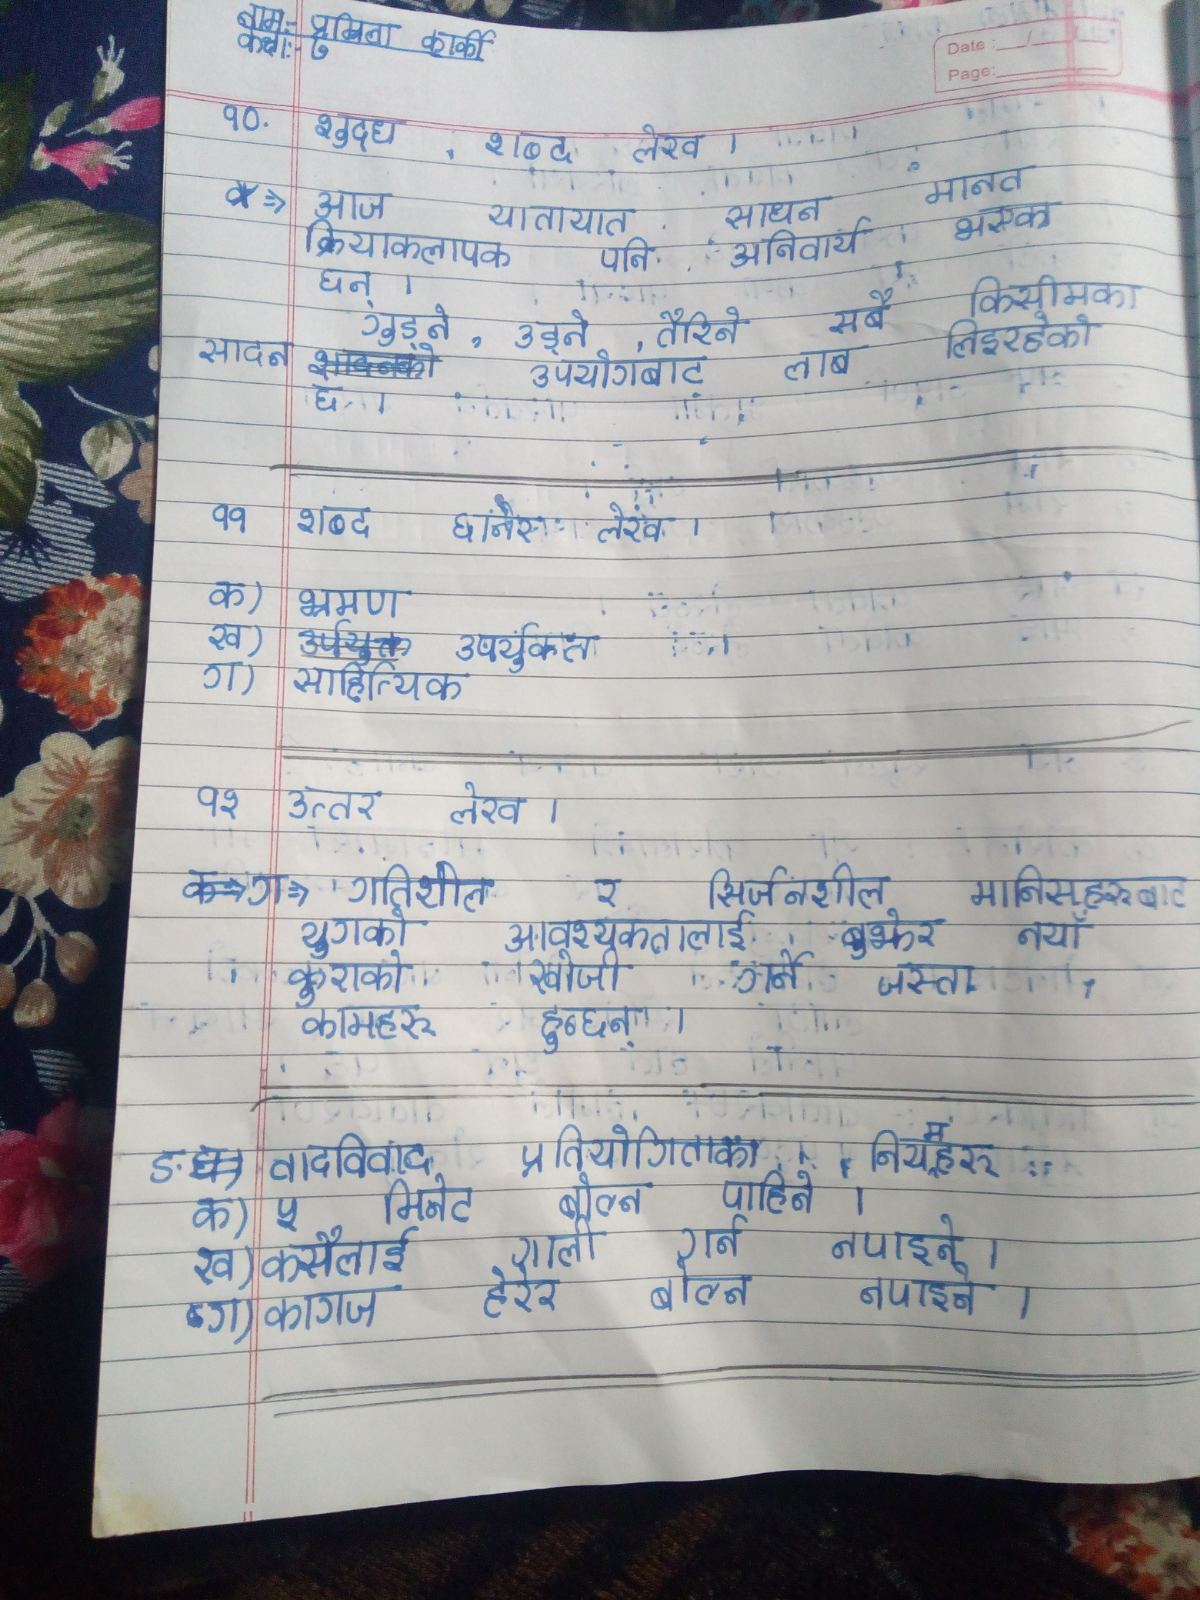 नाम:- प्रमिता कार्की
कक्षा:- ७
Date :___/___
Page:___
१०. शुद्ध शब्द लेख ।
क ⇒ आज यातायात साधन मानत
क्रियाकलापक पनि अनिवार्य भएका
छन् ।
गुड्ने, उड्ने, तैरिने सबै किसीमका
सादन उपयोगबाट लाब लिइरहेको
छ ।
११ शब्द छानेर लेख ।
क) भ्रमण
ख) उपर्युकत
ग) साहित्यिक
१२ उत्तर लेख ।
ग⇒ गतिशील र सिर्जनशील मानिसहरुबाट
युगको आवश्यकतालाई बुझेर नयाँ
कुराको खोजी गर्ने जस्ता
कामहरु हुन्छन् ।
ङ. वादविवाद प्रतियोगिताका नियमहरु
क) ५ मिनेट बोल्न पाहिने ।
ख) कसैलाई गाली गर्न नपाइने ।
ग) कागज हेरेर बोल्न नपाइने ।